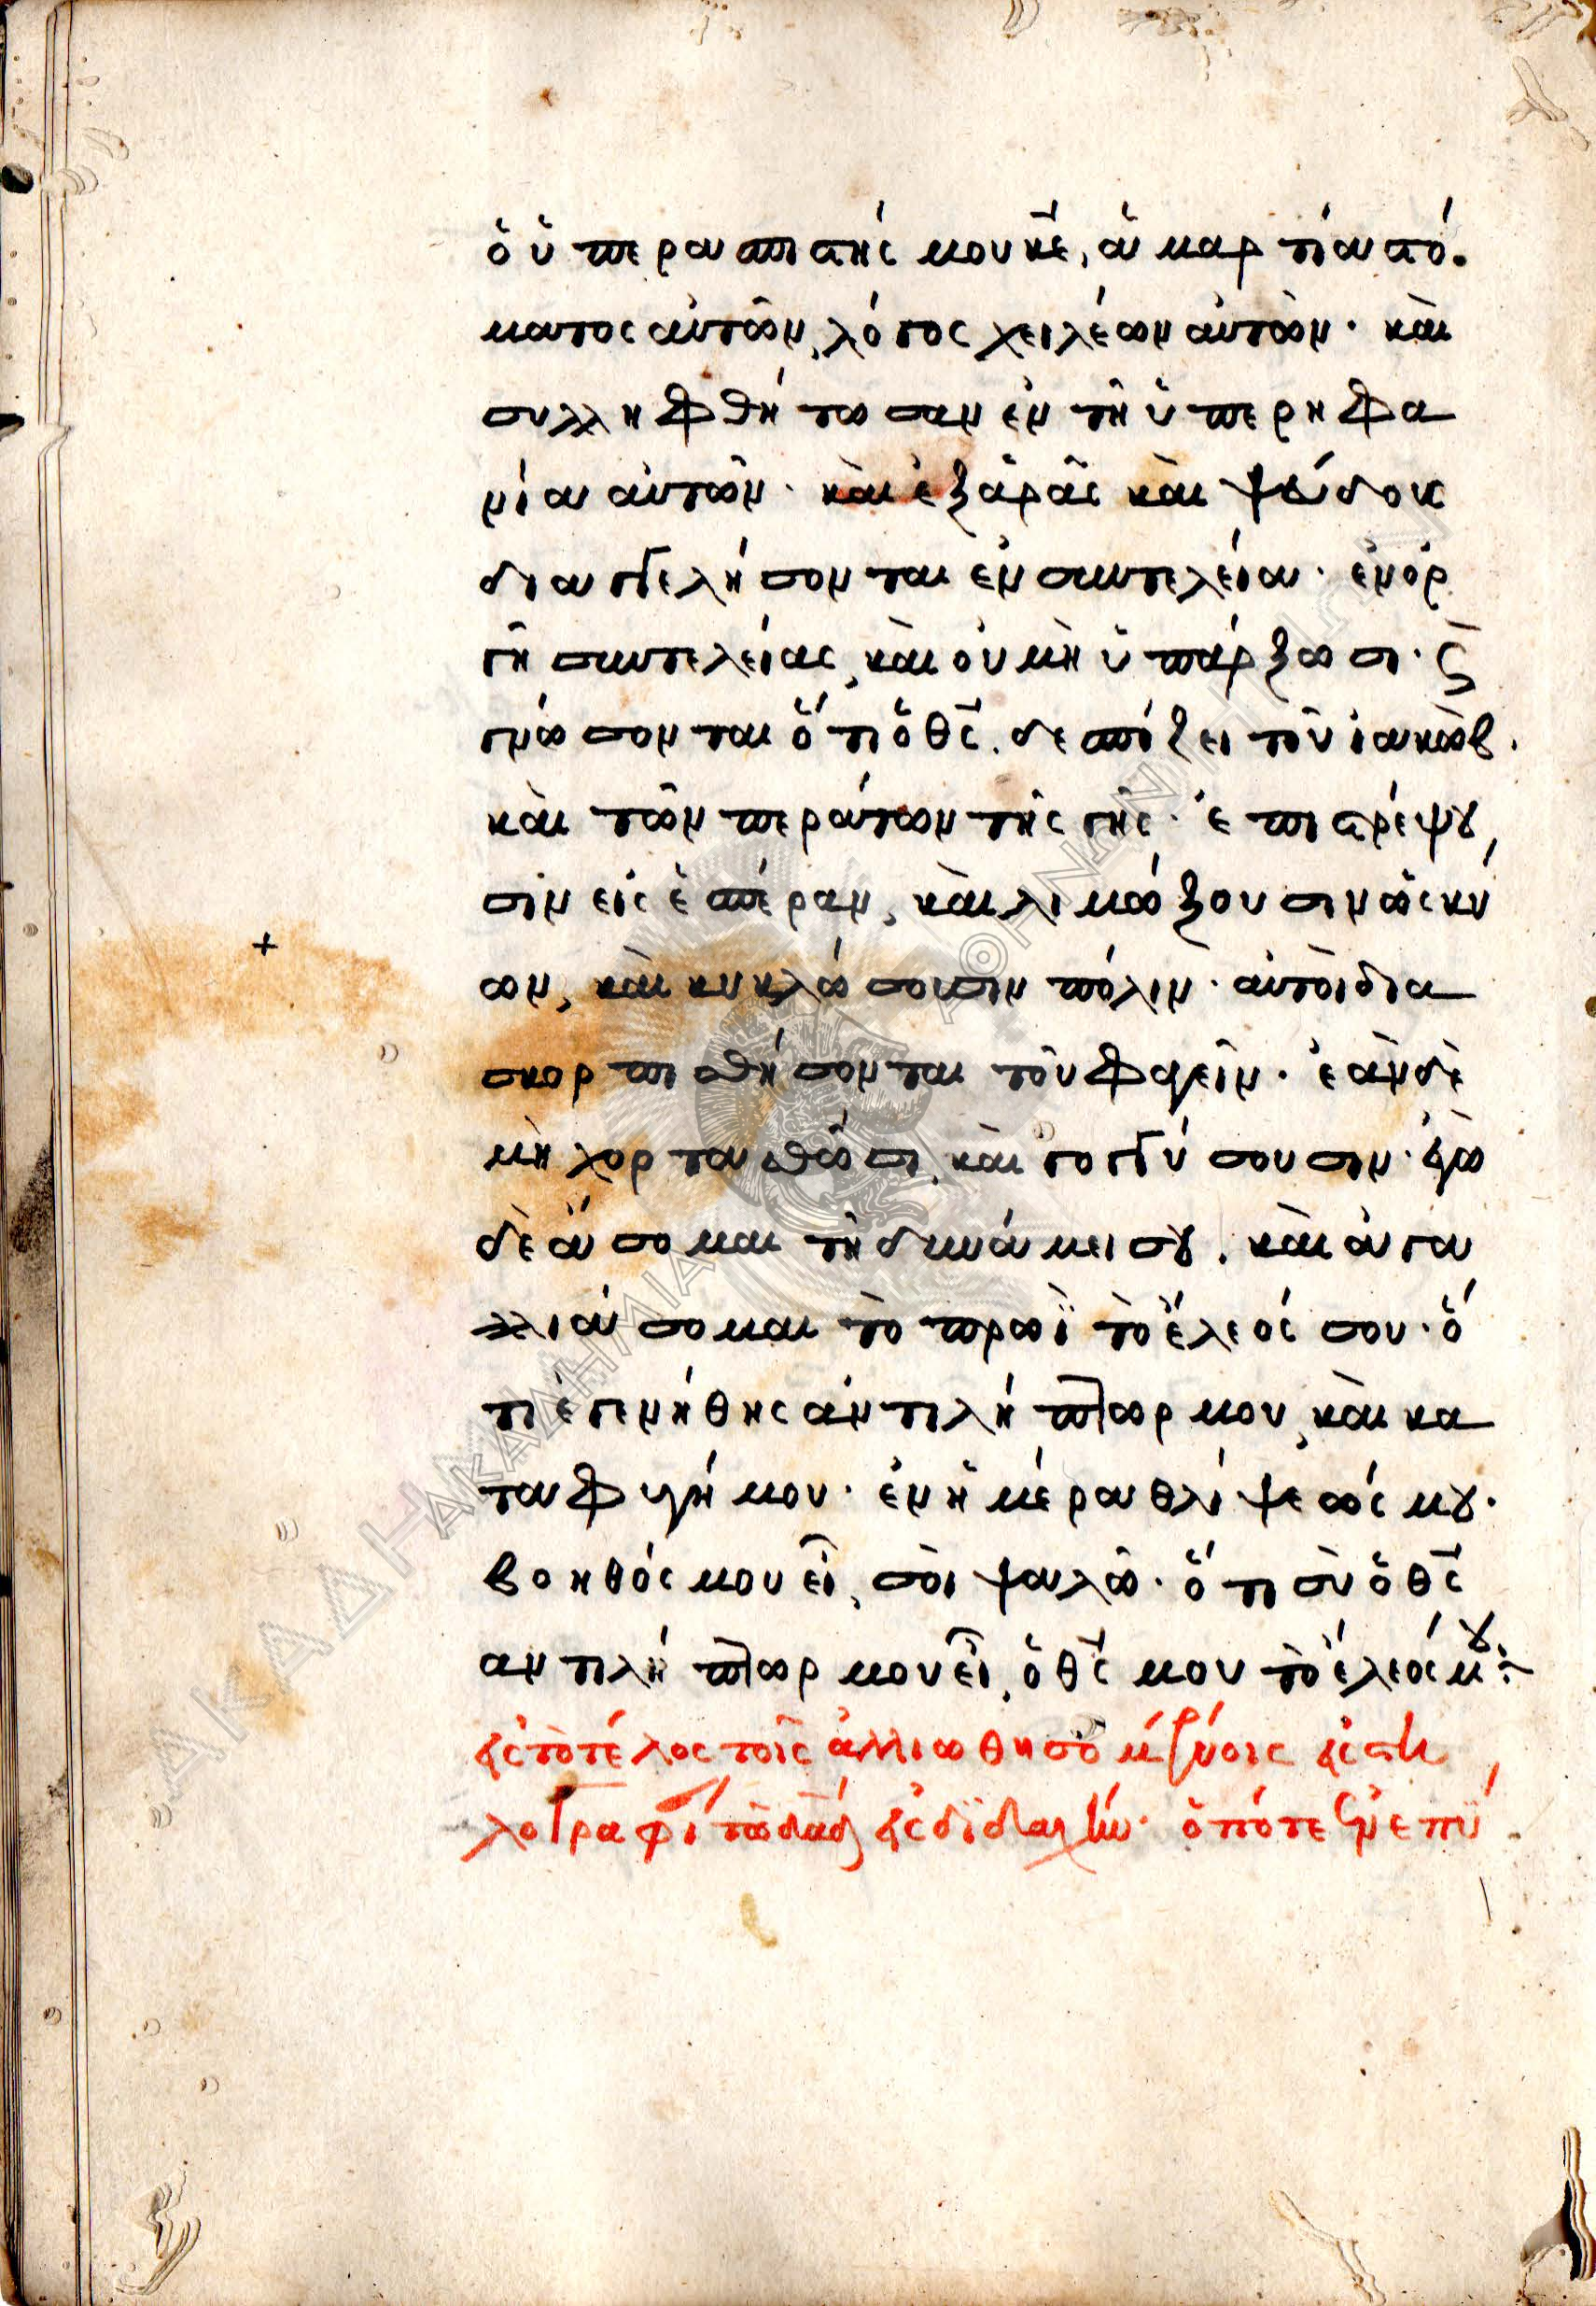 ὁ ὑπερασπιστής μου κε, ἁμαρτία στό
ματος αὐτῶν, λόγος χειλέων αὐτῶν· καὶ
συλληφθήτωσαν ἐν τῆ ὑπερηφα
νία αὐτῶν· καὶ ἐξ ἀρᾶς καὶ ψεύδους
διαγγελήσονται ἐν συντελεία· ἐν ὀρ
γῆ συντελείας, καὶ οὐ μὴ ὑπάρξωσι· ϛ
γνώσονται ὅτι ὁ θς δεσπόζει τοῦ ἰακὼβ.
καὶ τῶν περάτων τῆς γῆς· ἐπιστρέψου
σιν εἰς ἑσπέραν, καὶ λιμώξουσιν ὡς κύ
ων, καὶ κυκλώσουσιν πόλιν· αὐτοὶ δια
σκορπισθήσονται τοῦ φαγεῖν· ἐὰν δὲ
μὴ χορτασθῶσι, καὶ γογγύσουσιν· ἐγὼ
δὲ ἄσομαι τῆ δυνάμει σου, καὶ ἀγα
λλιάσομαι τὸ πρωῒ τὸ ἔλεός σου· ὅ
τι ἐγενήθης ἀντιλήπτωρ μου, καὶ κα
ταφυγή μου· ἐν ἡμέρα θλίψεώς μου·
βοηθός μου εἶ, σοὶ ψαλῶ· ὅτι σὺ ὁ θς
αντιλήπτωρ μου εἶ, ὁ θς μου τὸ ἔλεός μου:~
εἰς τὸ τέλος τοῖς ἀλλιωθησομένοις εἰς στη
λογραφί τῶ δαδ εἰς διδαχήν· ὁπότε ἐνεπύ
ΑΚΑΔΗΜΙΑ ΑΘΗΝΩΝ